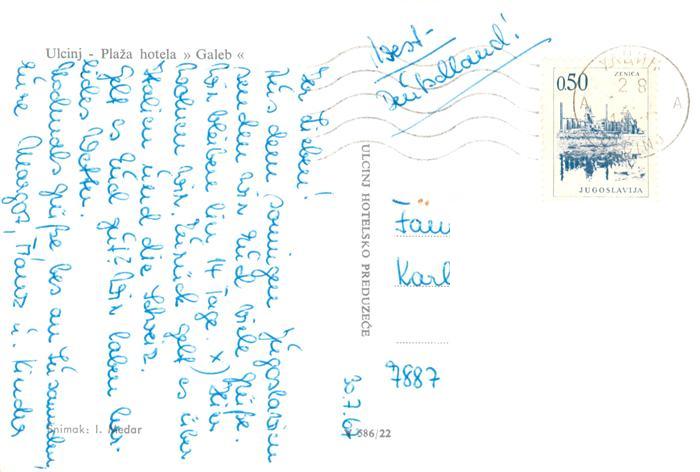 Ulcinj - Plaža hotela » Galeb «
Ihr Lieben!
Aus dem sonnigen Jugoslawien
senden wir Euch viele Grüße.
Wir bleiben hier 14 Tage. x)
wir. Zurück geht es über
Italien und die Schweiz.
Geht es Euch gut? Wir haben
Wetter.
Grüße bes. an
Eure Margot, Franz u. Kinder
Snimak: I. Medar
ULCINJ HOTELSKO PREDUZEĆE
30.7.6
586/22
West-
Deutschland!
0.50
ZENICA
JUGOSLAVIJA
A
2 8
A
Fam
Karl
7887